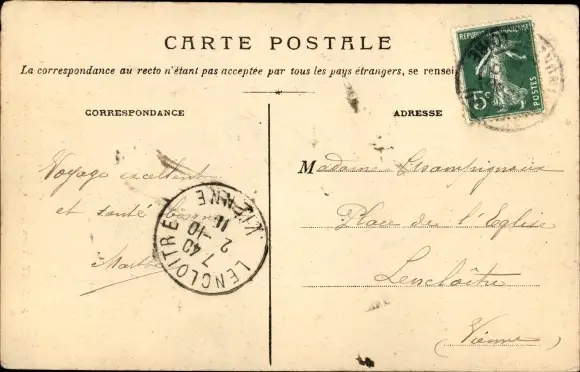 CARTE POSTALE
La correspondance au recto n'étant pas acceptée par tous les pays étrangers, se rensei
REPUBLIQUE FRANÇAISE
5c
POSTES
CORRESPONDANCE
ADRESSE
Voyage excellent
et santé
Marthe
LENCLOITRE
VIENNE
7 40
2 -10
Madame Champigneux
Place du l'Eglise
Lencloître
(Vienne)